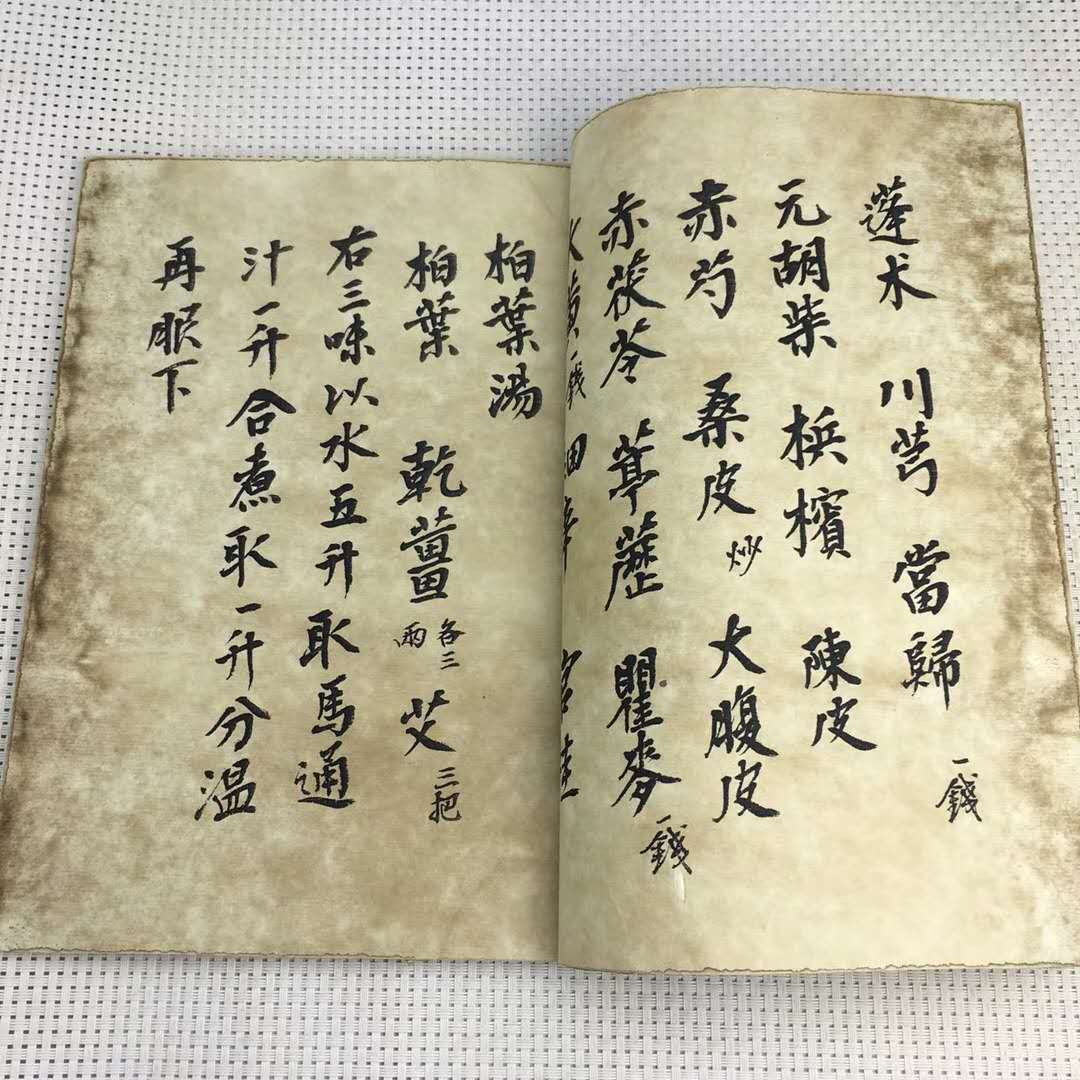 蓬术 川芎 當歸 一錢
元胡柴 梹檳 陳皮
赤芍 桑皮 炒 大腹皮
赤茯苓 葶藶 瞿麥 一錢
黄 一錢 細辛 官桂
柏葉湯
柏葉 乾薑 各三兩 艾 三把
右三味以水五升取馬通
汁一升合煮取一升分溫
再服下